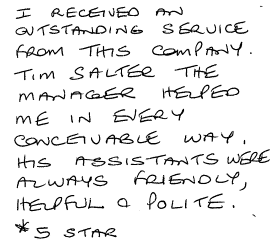 I RECEIVED AN
OUTSTANDING SERVICE
FROM THIS COMPANY.
TIM SALTER THE
MANAGER HELPED
ME IN EVERY
CONCEIVABLE WAY.
HIS ASSISTANTS WERE
ALWAYS FRIENDLY,
HELPFUL & POLITE.
*5 STAR